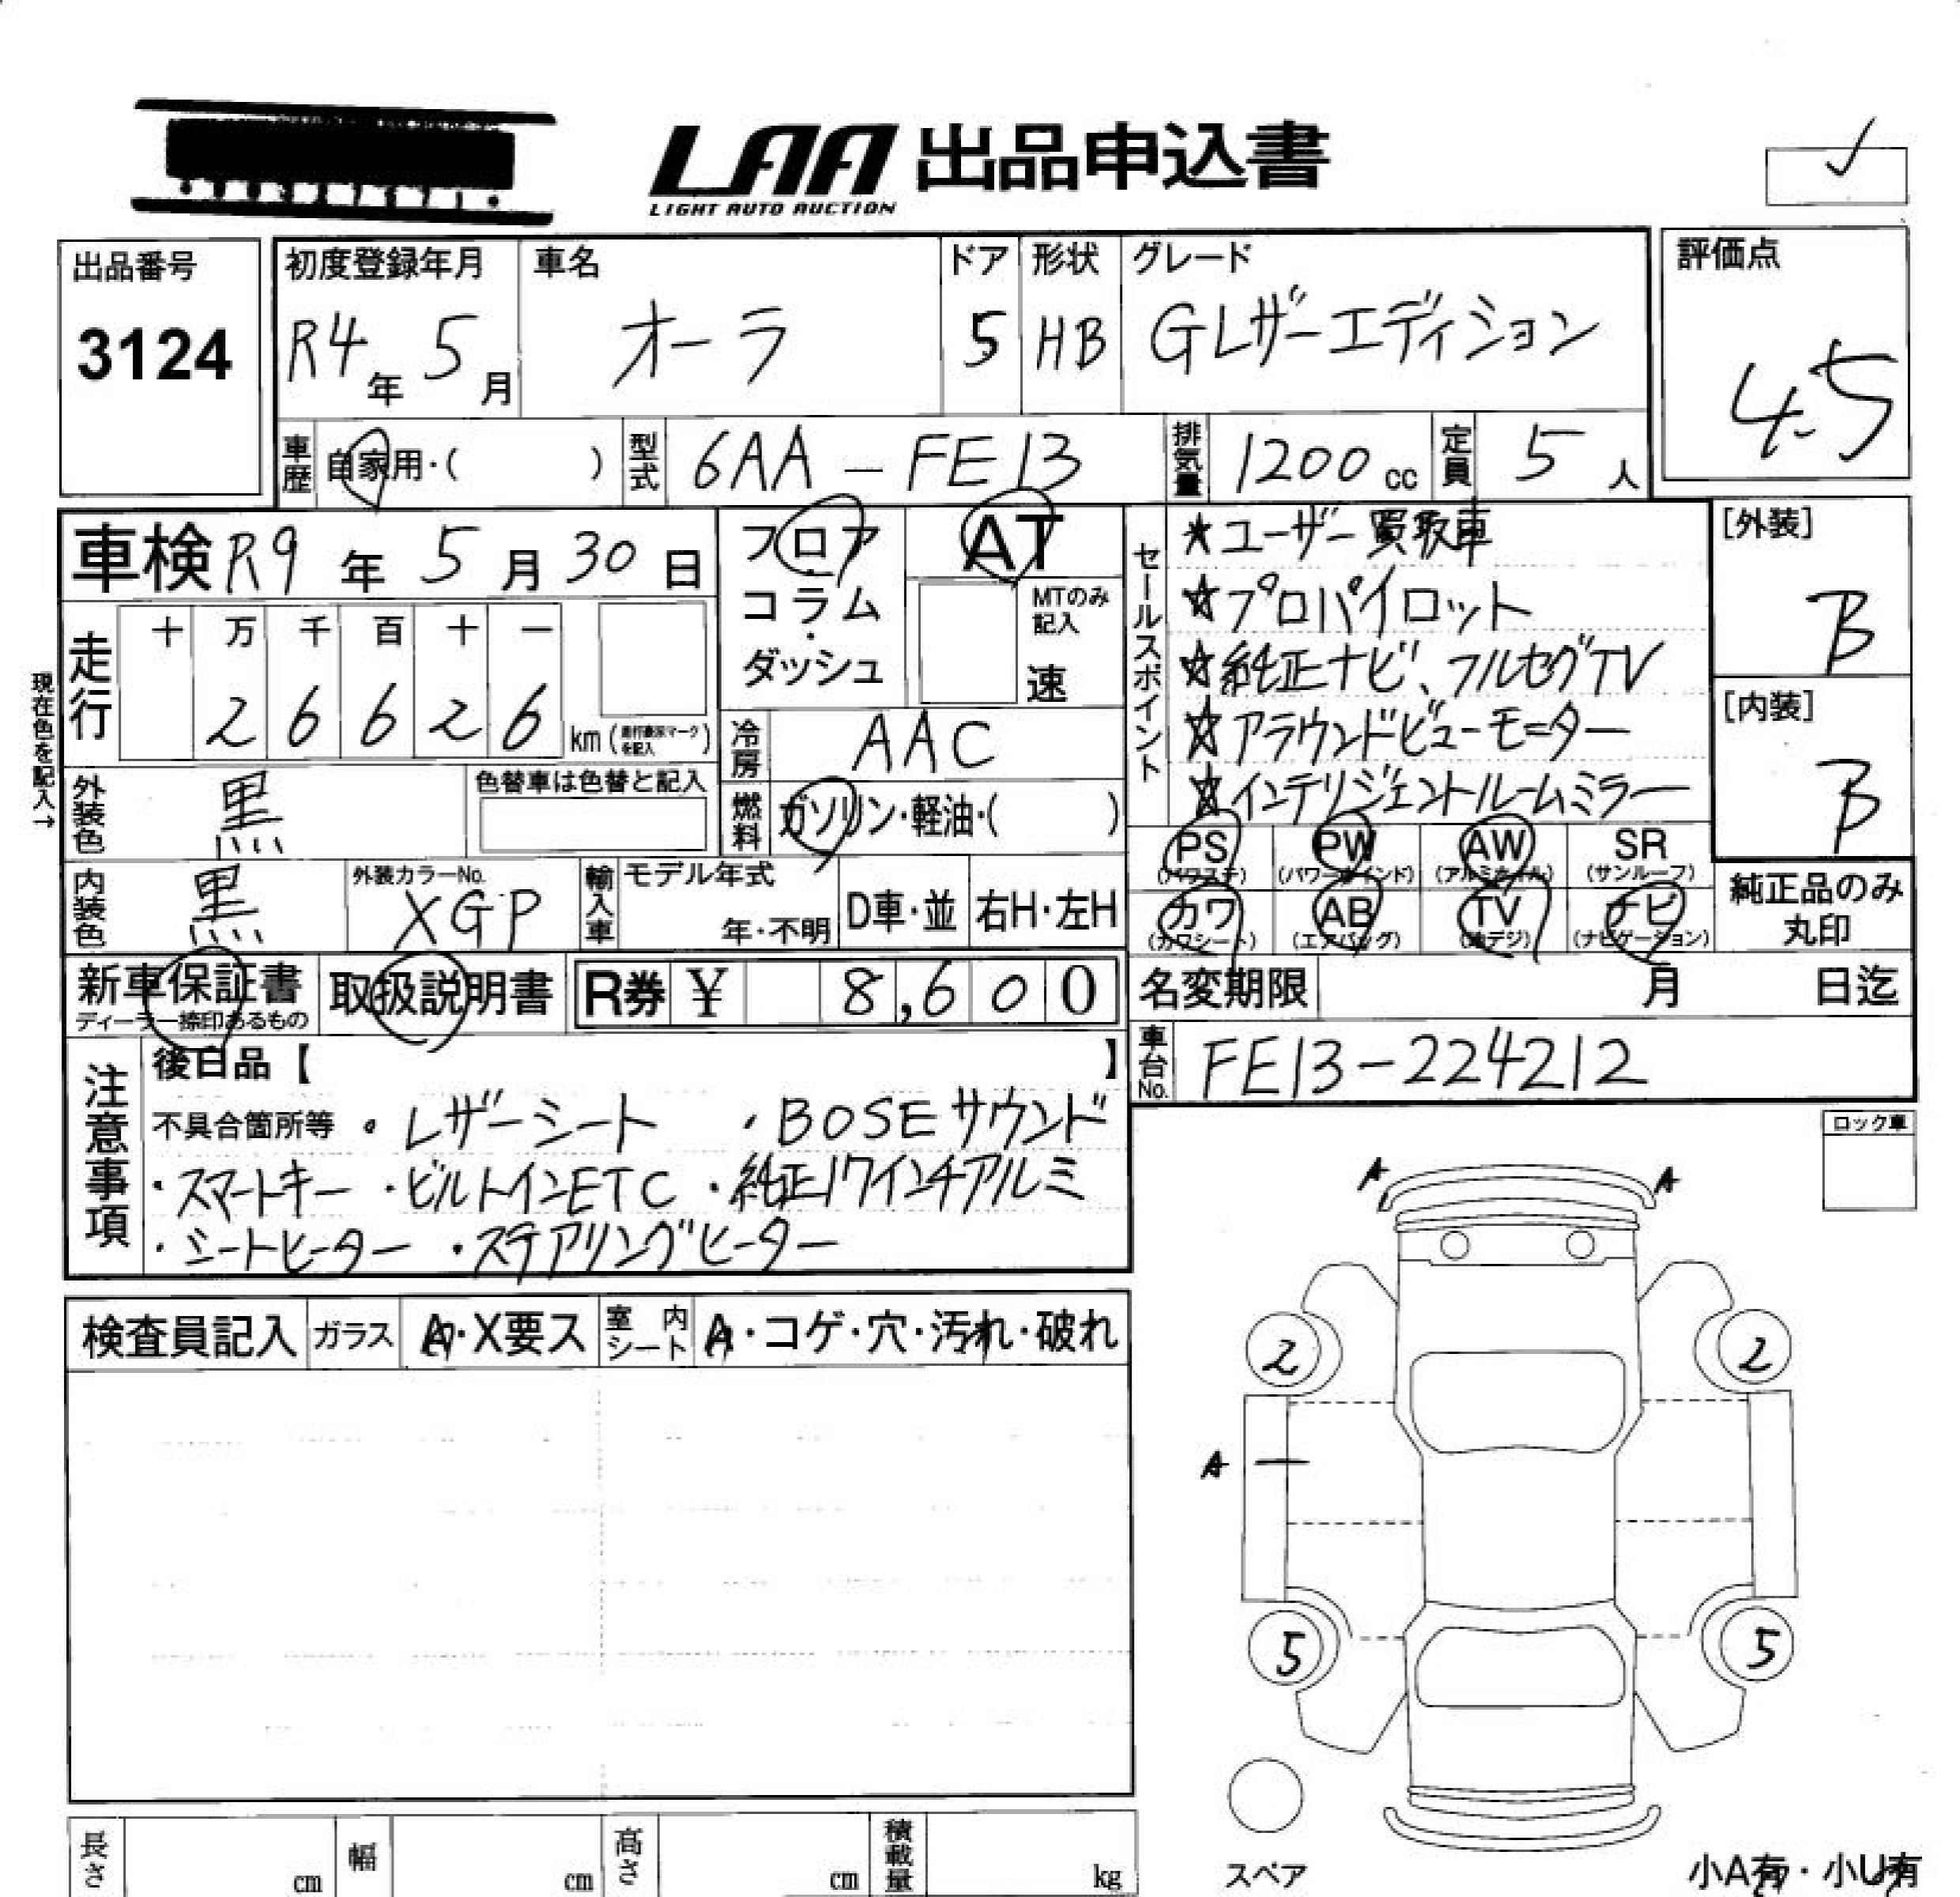 LAA 出品申込書
LIGHT AUTO AUCTION
出品番号
3124
初度登録年月
R4年 5月
車名
オーラ
ドア
5
形状
HB
グレード
Gレザーエディション
評価点
4.5
車歴 自家用・( )
型式 6AA - FE13
排気量 1200 cc
定員 5 人
車検 R9 年 5 月 30 日
フロア
コラム
・
ダッシュ
AT
MTのみ
記入
速
セールスポイント
★ユーザー買取車
☆プロパイロット
☆純正ナビ、フルセグTV
☆アラウンドビューモニター
☆インテリジェントルームミラー
[外装]
B
[内装]
B
現在色を記入→
走行
十 万 千 百 十 一
2 6 6 2 6 km
冷房 AAC
燃料 ガソリン・軽油・( )
外装色 黒
色替車は色替と記入
内装色 黒
外装カラーNo.
XGP
輸入車
モデル年式
年・不明
D車・並
右H・左H
PS (パワステ)
PW (パワーウインド)
AW (アルミホイル)
SR (サンルーフ)
カワ (カワシート)
AB (エアバッグ)
TV (地デジ)
ナビ (ナビゲーション)
純正品のみ
丸印
新車保証書
ディーラー捺印あるもの
取扱説明書
R券 ¥ 8,600
名変期限 月 日迄
車台No. FE13-224212
注意事項
後日品【 】
不具合箇所等 ・レザーシート ・BOSEサウンド
・スマートキー ・ビルトインETC ・純正17インチアルミ
・シートヒーター ・ステアリングヒーター
ロック車
A A
検査員記入
ガラス A・X要ス
室内シート A・コゲ・穴・汚れ・破れ
2 2
A
5 5
スペア
小A有・小U有
長さ cm
幅 cm
高さ cm
積載量 kg